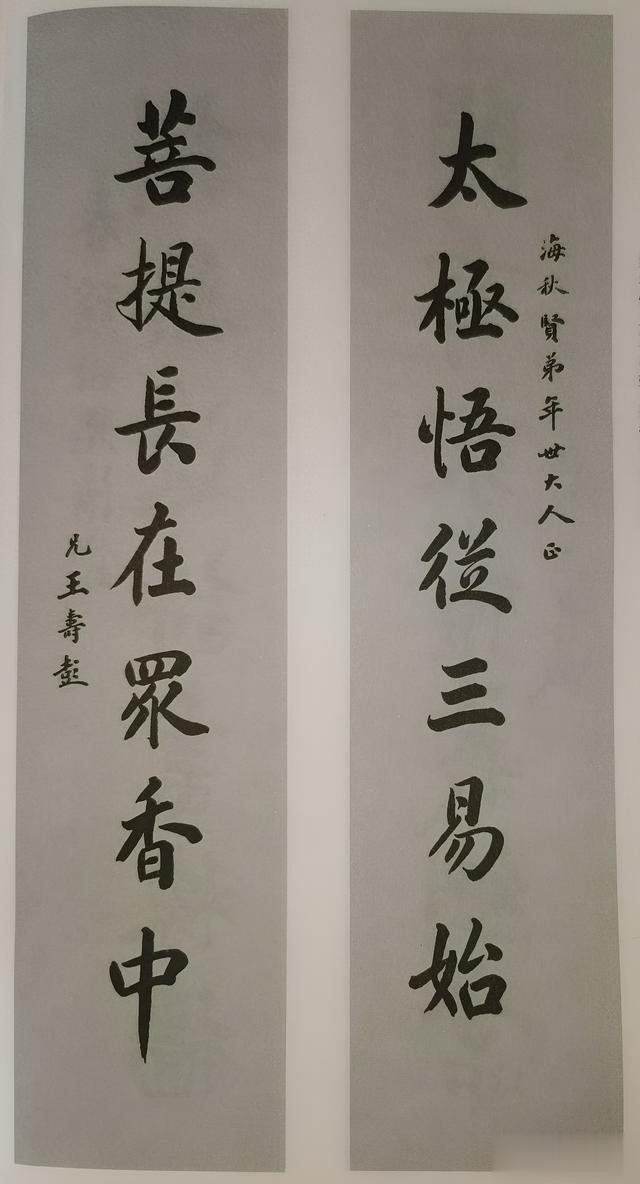 海秋賢弟年世大人正
太極悟從三易始
菩提長在眾香中
兄王壽彭